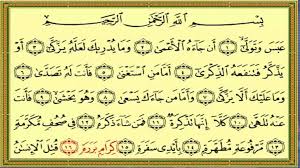 بِسْمِ اللَّهِ الرَّحْمَٰنِ الرَّحِيمِ
عَبَسَ وَتَوَلَّىٰ ﴿١﴾ أَن جَاءَهُ الْأَعْمَىٰ ﴿٢﴾ وَمَا يُدْرِيكَ لَعَلَّهُ يَزَّكَّىٰ ﴿٣﴾ أَوْ
يَذَّكَّرُ فَتَنفَعَهُ الذِّكْرَىٰ ﴿٤﴾ أَمَّا مَنِ اسْتَغْنَىٰ ﴿٥﴾ فَأَنتَ لَهُ تَصَدَّىٰ ﴿٦﴾
وَمَا عَلَيْكَ أَلَّا يَزَّكَّىٰ ﴿٧﴾ وَأَمَّا مَن جَاءَكَ يَسْعَىٰ ﴿٨﴾ وَهُوَ يَخْشَىٰ ﴿٩﴾ فَأَنتَ
عَنْهُ تَلَهَّىٰ ﴿١٠﴾ كَلَّا إِنَّهَا تَذْكِرَةٌ ﴿١١﴾ فَمَن شَاءَ ذَكَرَهُ ﴿١٢﴾ فِي صُحُفٍ مُّكَرَّمَةٍ
﴿١٣﴾ مَّرْفُوعَةٍ مُّطَهَّرَةٍ ﴿١٤﴾ بِأَيْدِي سَفَرَةٍ ﴿١٥﴾ كِرَامٍ بَرَرَةٍ ﴿١٦﴾ قُتِلَ الْإِنسَٰنُ